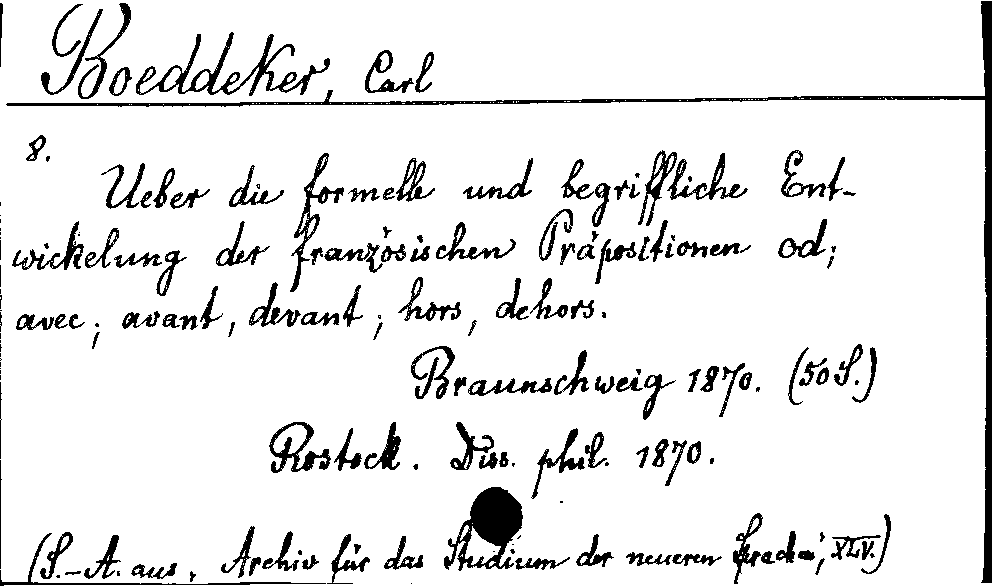 Boeddeker, Carl
8.
Ueber die formelle und begriffliche Ent-
wickelung der französischen Präpositionen od;
avec; avant, devant; hors, dehors.
Braunschweig 1870. (50 S.)
Rostock. Diss. phil. 1870.
(S.-A. aus, Archiv für das Studium der neueren Sprachen', XLV.)